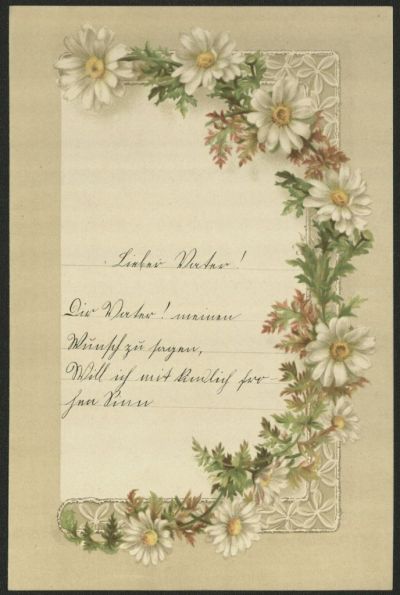 Lieber Vater!
Dir Vater! meinen
Wunsch zu sagen,
Will ich mit kindlich fro-
hen Sinn